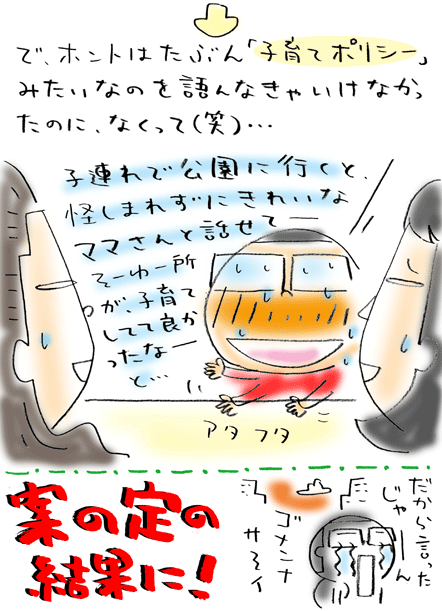 で、ホントはたぶん「子育てポリシー」
みたいなのを語んなきゃいけなかっ
たのに、なくって(笑)…
子連れで公園に行くと、
怪しまれずにきれいな
ママさんと話せてー
そーゆー所
が、子育て
してて良か
ったなー
と…
アタフタ
案の定の
結果に!
だから言った
じゃーん
ゴメンナ
サイ